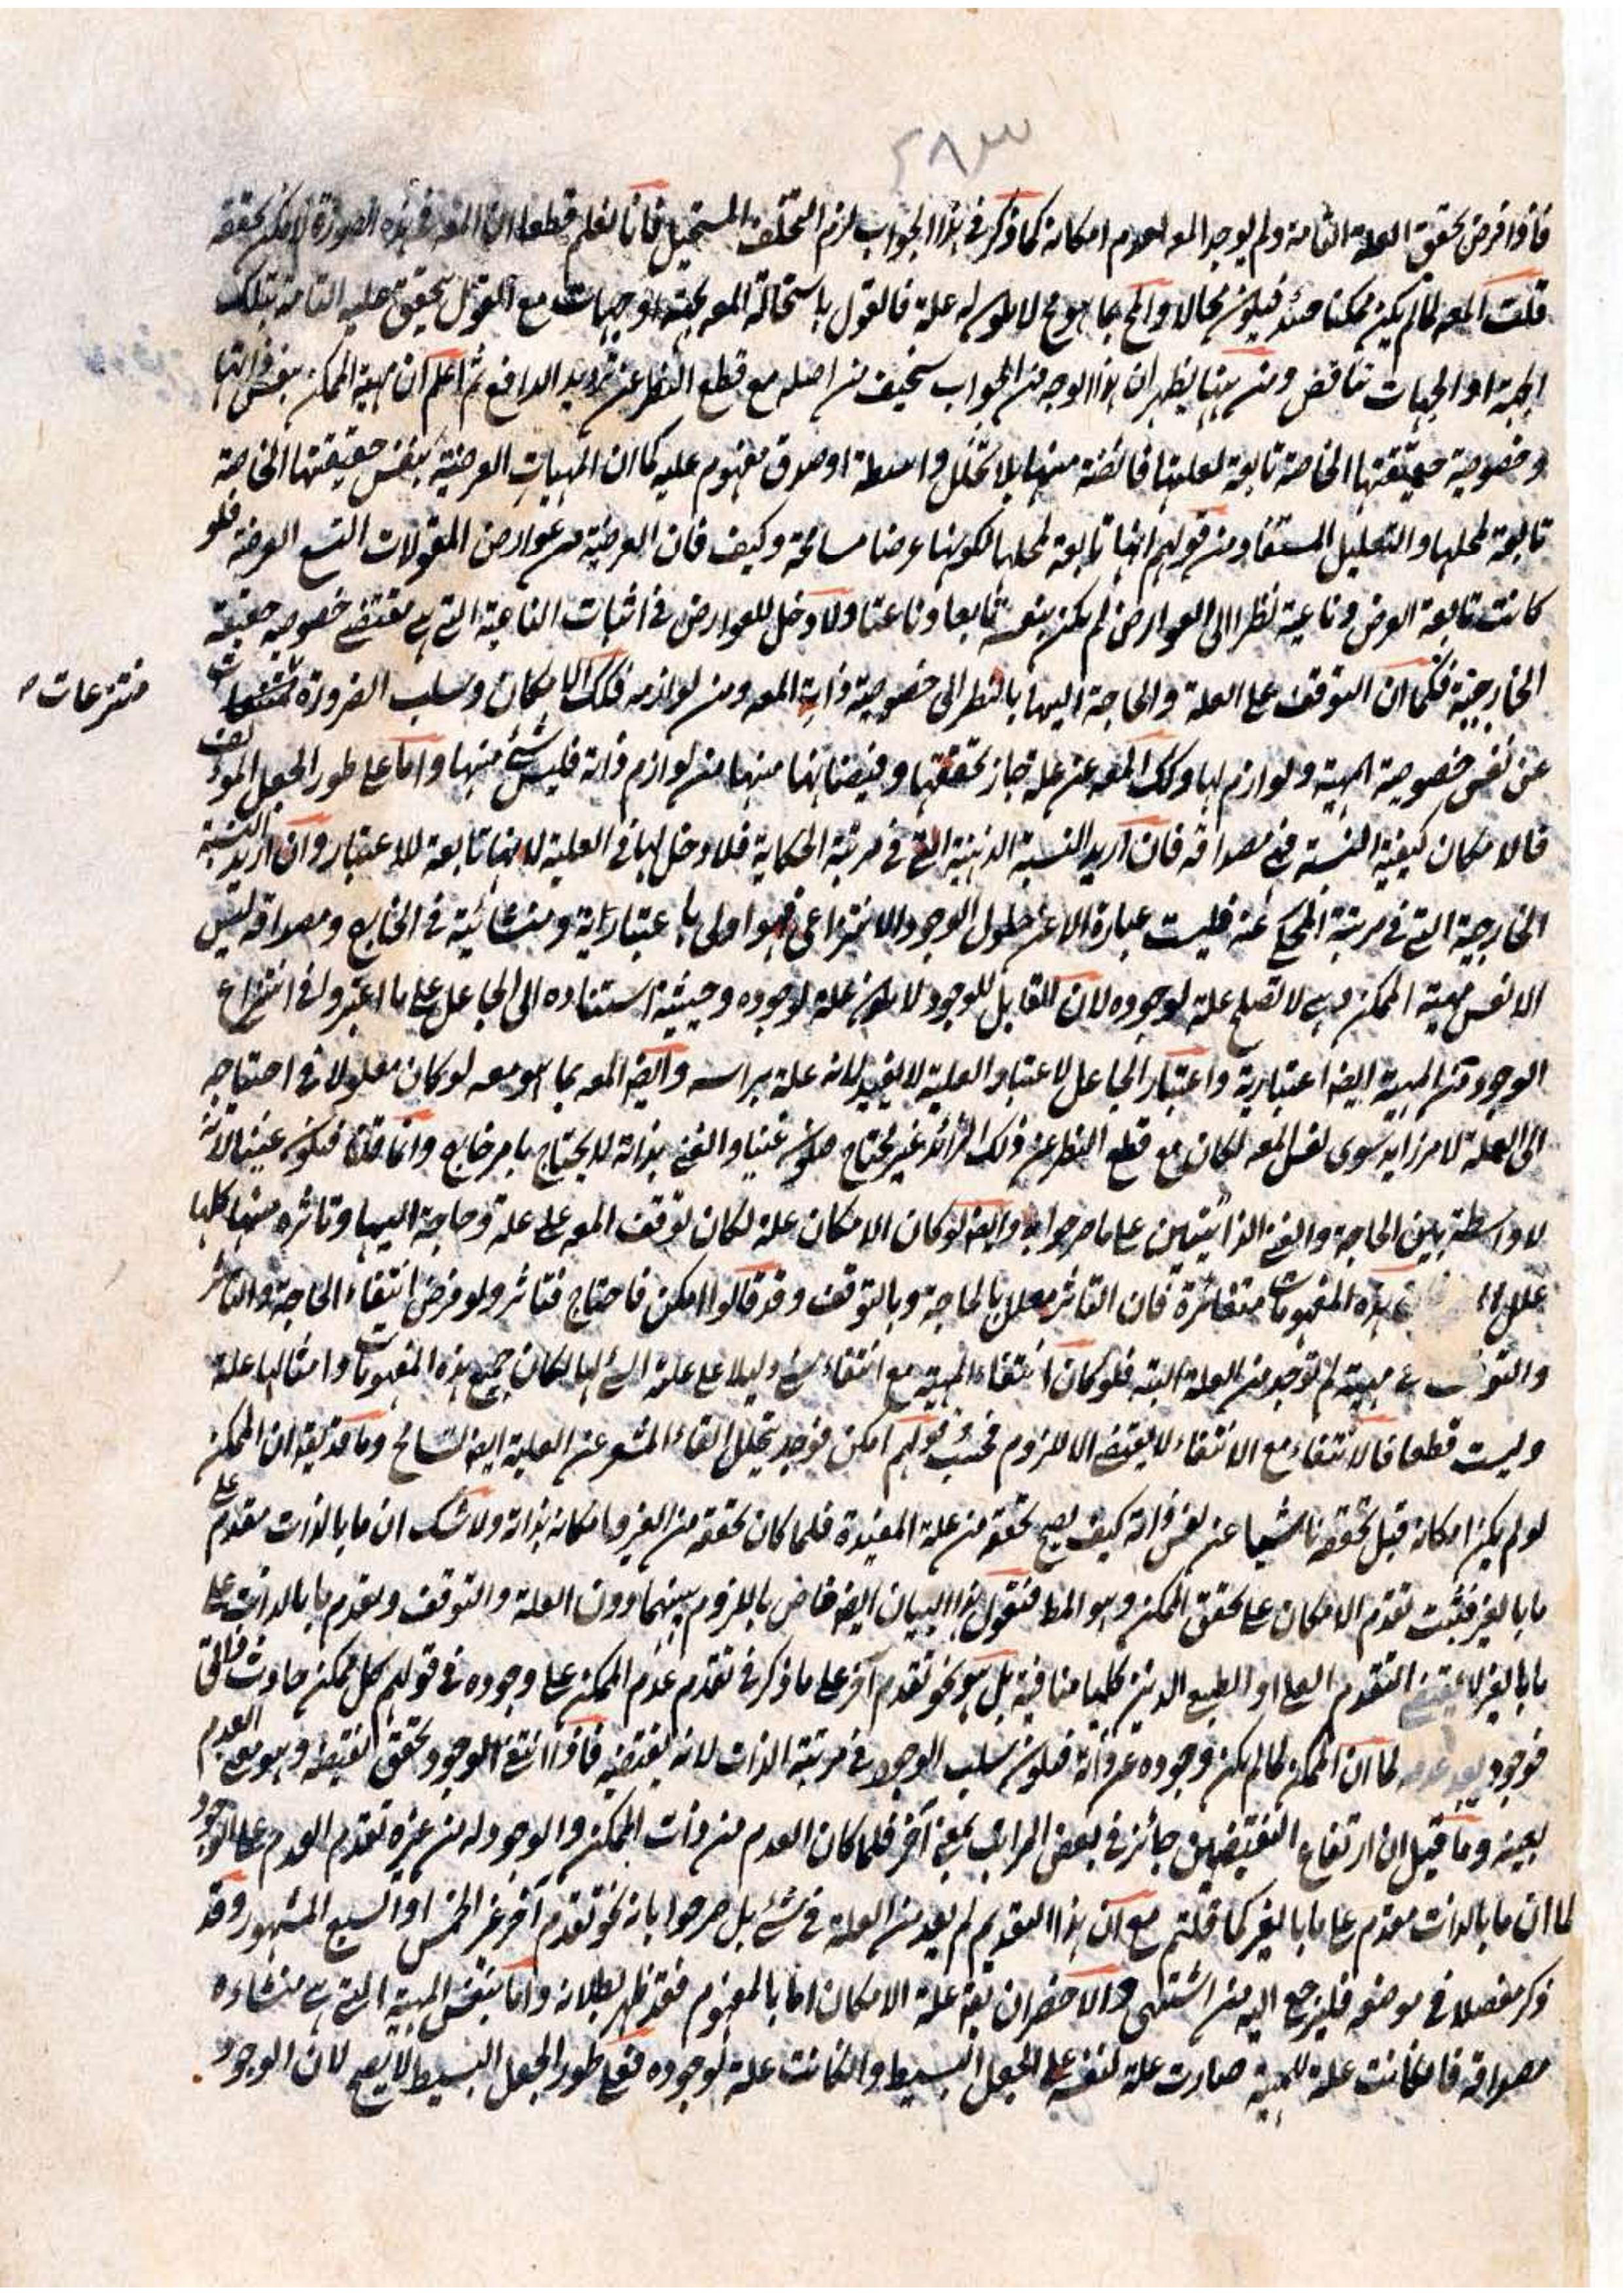 ٢٨٣
فاذا فرض تحقق العلة التامة ولم يوجد المعه لعدم امكانه كما ذكر فى هذا الجواب لزم التخلف المستحيل فانا نعلم قطعا ان المعه فى هذه الصورة لا يمكن تحققه
قلت المعه لما لم يكن ممكنا حينئذ فيكون محالا والمح بما هو مح لا يكون له علة فالقول باستحالة المعه بجهة او جهات مع القول بتحقق علية التامة بتلك
الجهة او الجهات تناقض ومن ههنا يظهر ان هذا الوجه من الجواب سخيف من اصله مع قطع النظر عن تردید الدافع ثم اعلم ان مهية الممكن بنفس ذاتها
وخصوصية حقيقتها الخاصة تابعة لعليتها فائضة منها بلا تخلل واسطة او صدق مفهوم عليه كما ان المهيات العرضية بنفس حقيقتها الخاصة
تابعة لمحلها والتعليل المستفاد من قولهم انها تابعة لمحلها لكونها عرضا مسامحة وكيف فان العرضية من عوارض المقولات التسع العرضه فلو
كانت تابعة العرض وناعتية نظرا الى العوارض لم يكن بنفسه تابعا وناعتا ولا دخل للعوارض فى اثبات الناعتية التى هى مقتضى خصوصية حقيقة
الخارجية فكما ان التوقف على العلة والحاجة اليها بالنظر الى خصوصية ذات المعه ومن لوازمه فكك الامكان وسلب الضرورة
منتزعات
عن نفس خصوصية المهية ولوازم لها وكك المعه عن علة جاز تحققها وفيضانها منها من لوازم ذاته فليس شئ منها واما على طور الجعل المؤلف
فالامكان كيفية النسبة فى مصداقه فان اريد النسبة الذهنية التى فى مرتبة الحكاية فلا دخل لها فى العلية لانها تابعة للاعتبار وان اريد النسبة
الخارجية التى فى مرتبة المحكى عنه فليست عبارة الا عن حلول الوجود الانتزاعى فهو اولى باعتباراته ومنشائيته فى الخارج ومصداقه ليس
الا نفس مهية الممكن وهى لا تصلح علة لوجوده لان القابل للوجود لا يكون علة لوجوده وحيثية استناده الى الجاعل على ما اعتبروا فى انتزاع
الوجود عن المهية ايضا اعتبارية واعتبار الجاعل لاعتبار العلية لا يفيد لانه علة براسه وايضا المعه بما هو معه لو كان معلولا فى احتياجه
الى العلة لامر زايد سوى نفس المعه لكان مع قطع النظر عن ذلك الزائد غير محتاج فيكون غنيا والغنى بذاته لا يحتاج بامر خارج وانما قلنا فيكون غنيا لانه
لا واسطة بين الحاجة والغنى الذاتيتين على ما صرحوا به وايضا لو كان الامكان علة لكان توقف المعه على علة وحاجة اليها وتاثره منها كلها
علل هذه المفهومات متغائرة فان التاثر معلل بالحاجة وبالتوقف وقد قالوا امكن فاحتاج فتاثر ولو فرض انتفاء الحاجة والتاثر
والتوقف مهية لم توجد من العلة البتة فلو كان انتفاء المهية مع انتفاء شئ دليلا على علة الشئ لها لكان جميع هذه المفهومات وامثالها علة
وليست قطعا فالانتفاء مع الانتفاء لا يقتضى الا اللزوم فحسب وقولهم امكن فوجد بتخلل الفاء المشعر عن العلية ايضا تسامح وما قد يقه ان الممكن
لو لم يكن امكانه قبل تحققه ناشيا عن نفس ذاته كيف يصح تحققه من علة المفيدة فلما كان تحققه من الغير وامكانه بذاته ولا شك ان ما بالذات مقدم على
ما بالغير فثبت تقدم الامكان على تحقق الممكن وهو المط فنقول هذا البيان ايضا خاص باللزوم بينهما دون العلة والتوقف وتقدم ما بالذات على
ما بالغير لا يقتضى التقدم العلى او الطبعى الذين كليهما منافية بل هو نحو تقدم آخر على ما ذكر فى تقدم عدم الممكن على وجوده فى قولهم كل ممكن حادث ذاتى
فوجود بعد عدمه لما ان الممكن لما لم يكن وجوده عن ذاته فيكون سلب الوجود فى مرتبة الذات لانه نقيضه فاذا انتفى الوجود تحقق نقيضه وهو معنى العدم
بعينه وما قيل ان ارتفاع النقيضين جائز فى بعض المراتب بمعنى آخر فلما كان العدم من ذات الممكن والوجود له من غيره تقدم العدم على الوجود
لما ان ما بالذات مقدم على ما بالغير كما قلتم مع ان هذا التقديم لم يعد من العلة فى شئ بل صرحوا بانه نحو تقدم آخر غير الخمس او السبع المشهور وقد
ذكر مفصلا فى موضعه فليرجع اليه من اشتهى والاخصر ان يقه علة الامكان اما بالمفهوم فقد ظهر بطلانه واما بنفس المهية التى هى منشاءه
مصداقه فاما كانت علة للمهية صارت علة لنفسه على الجعل البسيط وان كانت علة لوجوده فعلى طور الجعل البسيط لا يصح لان الوجود